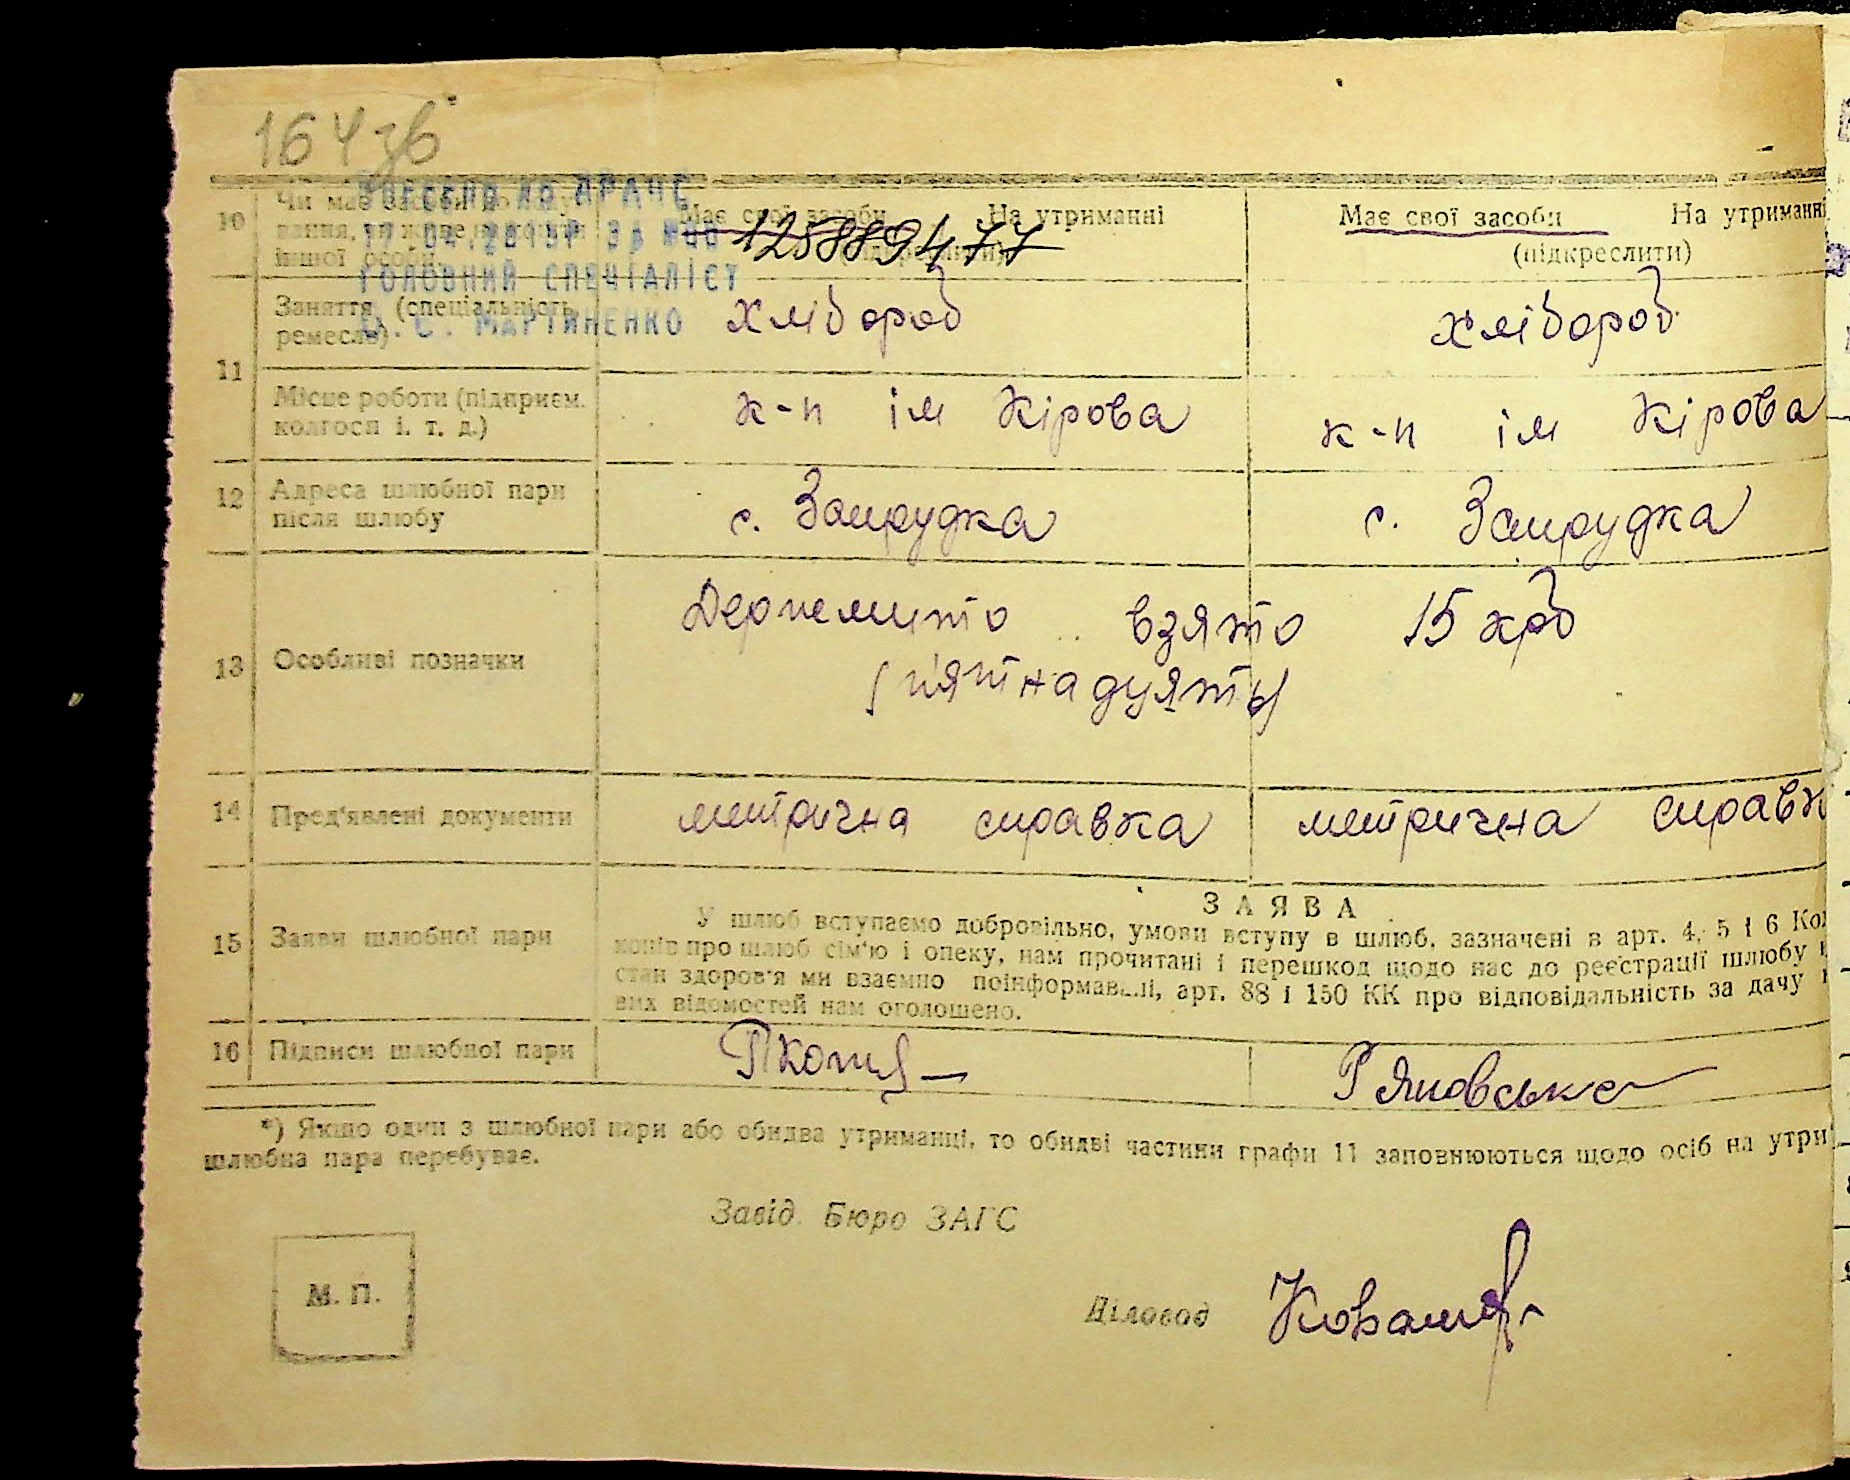 164зв
ВНЕСЕНО ДО ДРАЦС
17.04.2013Р ЗА №00 1258894 77
ГОЛОВНИЙ СПЕЦІАЛІСТ
О.С. МАРТИНЕНКО
10 Чи має засоби до існування, чи живе на кошти іншої особи
Має свої засоби На утриманні
(підкреслити)
Має свої засоби На утриманні
(підкреслити)
11 Заняття (спеціальність, ремесло)
хлібороб
хлібороб
Місце роботи (підприєм. колгосп і. т. д.)
к-п ім Кірова
к-п ім Кірова
12 Адреса шлюбної пари
після шлюбу
с. Запрудка
с. Запрудка
13 Особливі позначки
Держмито взято 15 крб
(п'ятнадцять)
14 Пред'явлені документи
метрична справка
метрична справк
15 Заяви шлюбної пари
ЗАЯВА
У шлюб вступаємо добровільно, умови вступу в шлюб, зазначені в арт. 4, 5 і 6 Ко
конів про шлюб сім'ю і опеку, нам прочитані і перешкод щодо нас до реєстрації шлюбу
стан здоров'я ми взаємно поінформавалі, арт. 88 і 150 КК про відповідальність за дачу
вих відомостей нам оголошено.
16 Підписи шлюбної пари
Р Яновська
*) Якщо один з шлюбної пари або обидва утриманці, то обидві частини графи 11 заповнюються щодо осіб на утри
шлюбна пара перебуває.
Завід. Бюро ЗАГС
М. П.
Діловод